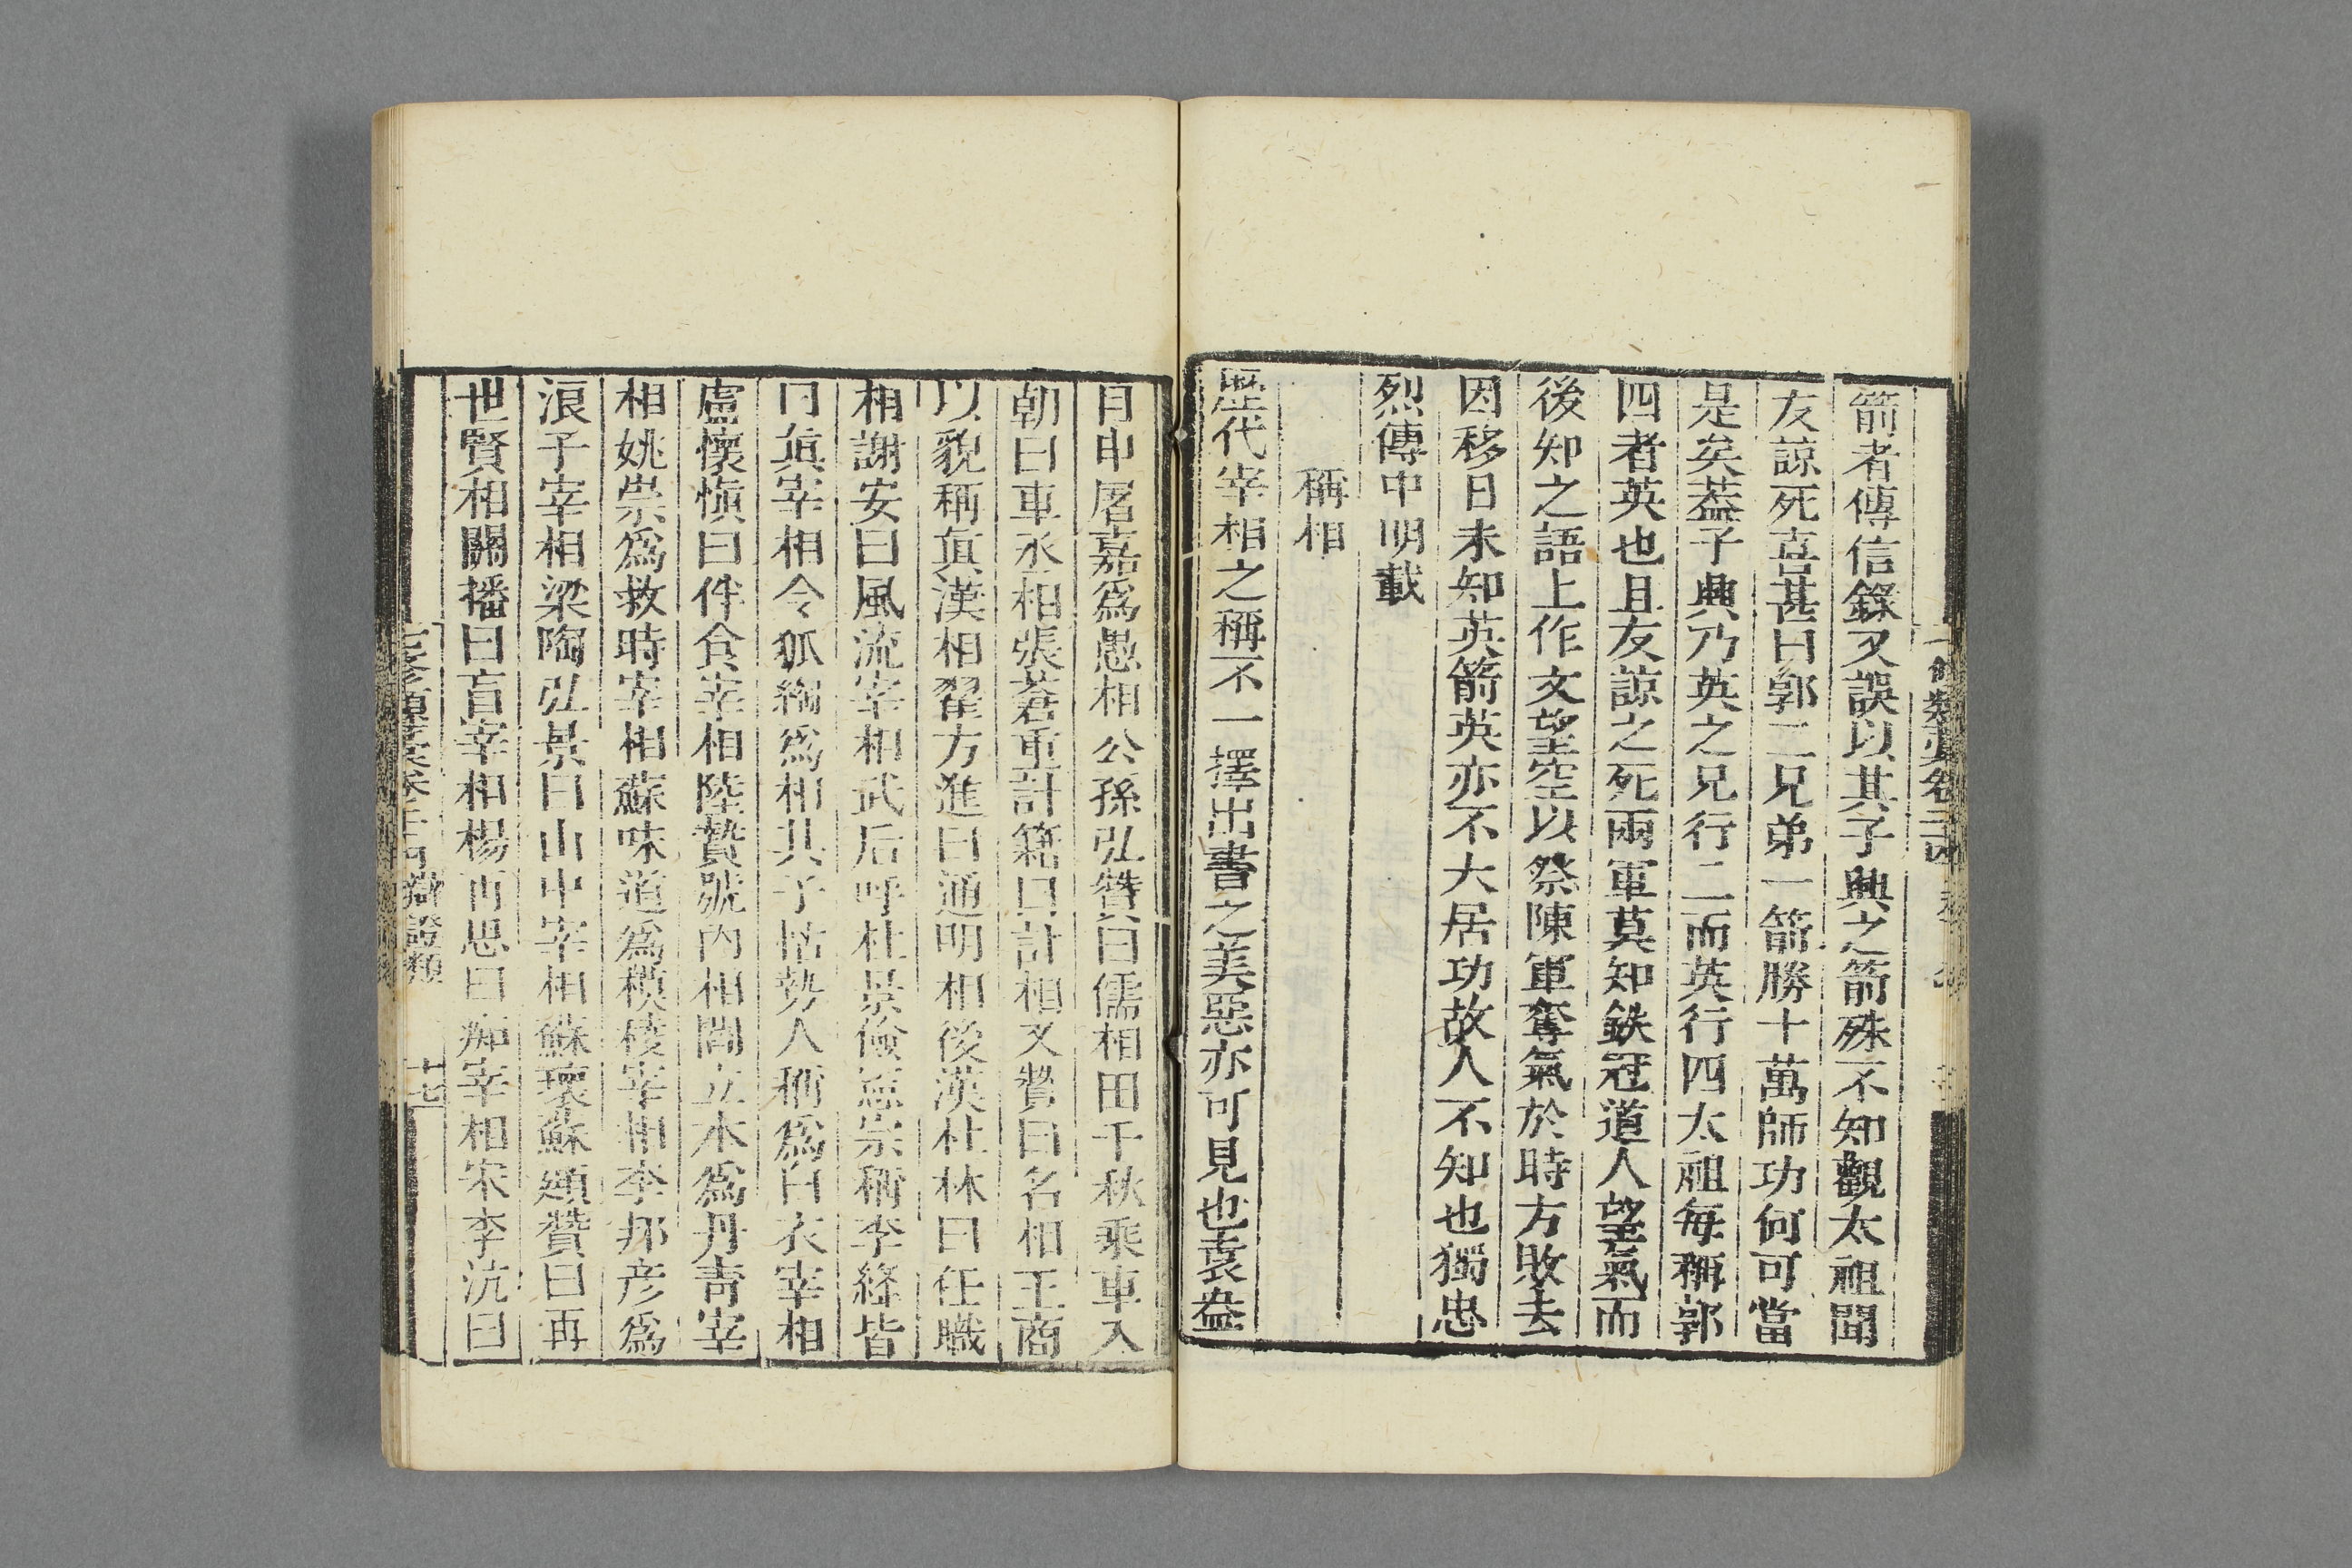 箭者傳信錄又誤以其子興之箭殊不知觀太祖聞
友諒死喜甚曰郭二兄弟一箭勝十萬師功何可當
是矣葢子興乃英之兄行二而英行四太祖每稱郭
四者英也且友諒之死兩軍莫知鉄冠道人望氣而
後知之語上作文望空以祭陳軍奪氣於時方敗去
因移日未知英箭英亦不大居功故人不知也獨忠
烈傳中明載
稱相
歷代宰相之稱不一擇出書之美惡亦可見也袁盎
目申屠嘉爲愚相公孫弘贊曰儒相田千秋乘車入
朝曰車丞相張蒼重計籍曰計相又贊曰名相王商
以貌稱眞漢相翟方進曰通明相後漢杜林曰任職
相謝安曰風流宰相武后呼杜景儉憲宗稱李絳皆
曰眞宰相令狐綯爲相其子怙勢人稱爲白衣宰相
盧懷愼曰伴食宰相陸贄號內相閻立本爲丹靑宰
相姚崇爲救時宰相蘇味道爲模稜宰相李邦彦爲
浪子宰相梁陶弘景曰山中宰相蘇瓌蘇頲贊曰再
世賢相關播曰盲宰相楊再思曰痴宰相宋李沆曰
七修類藁卷二十四 辯證類 十七